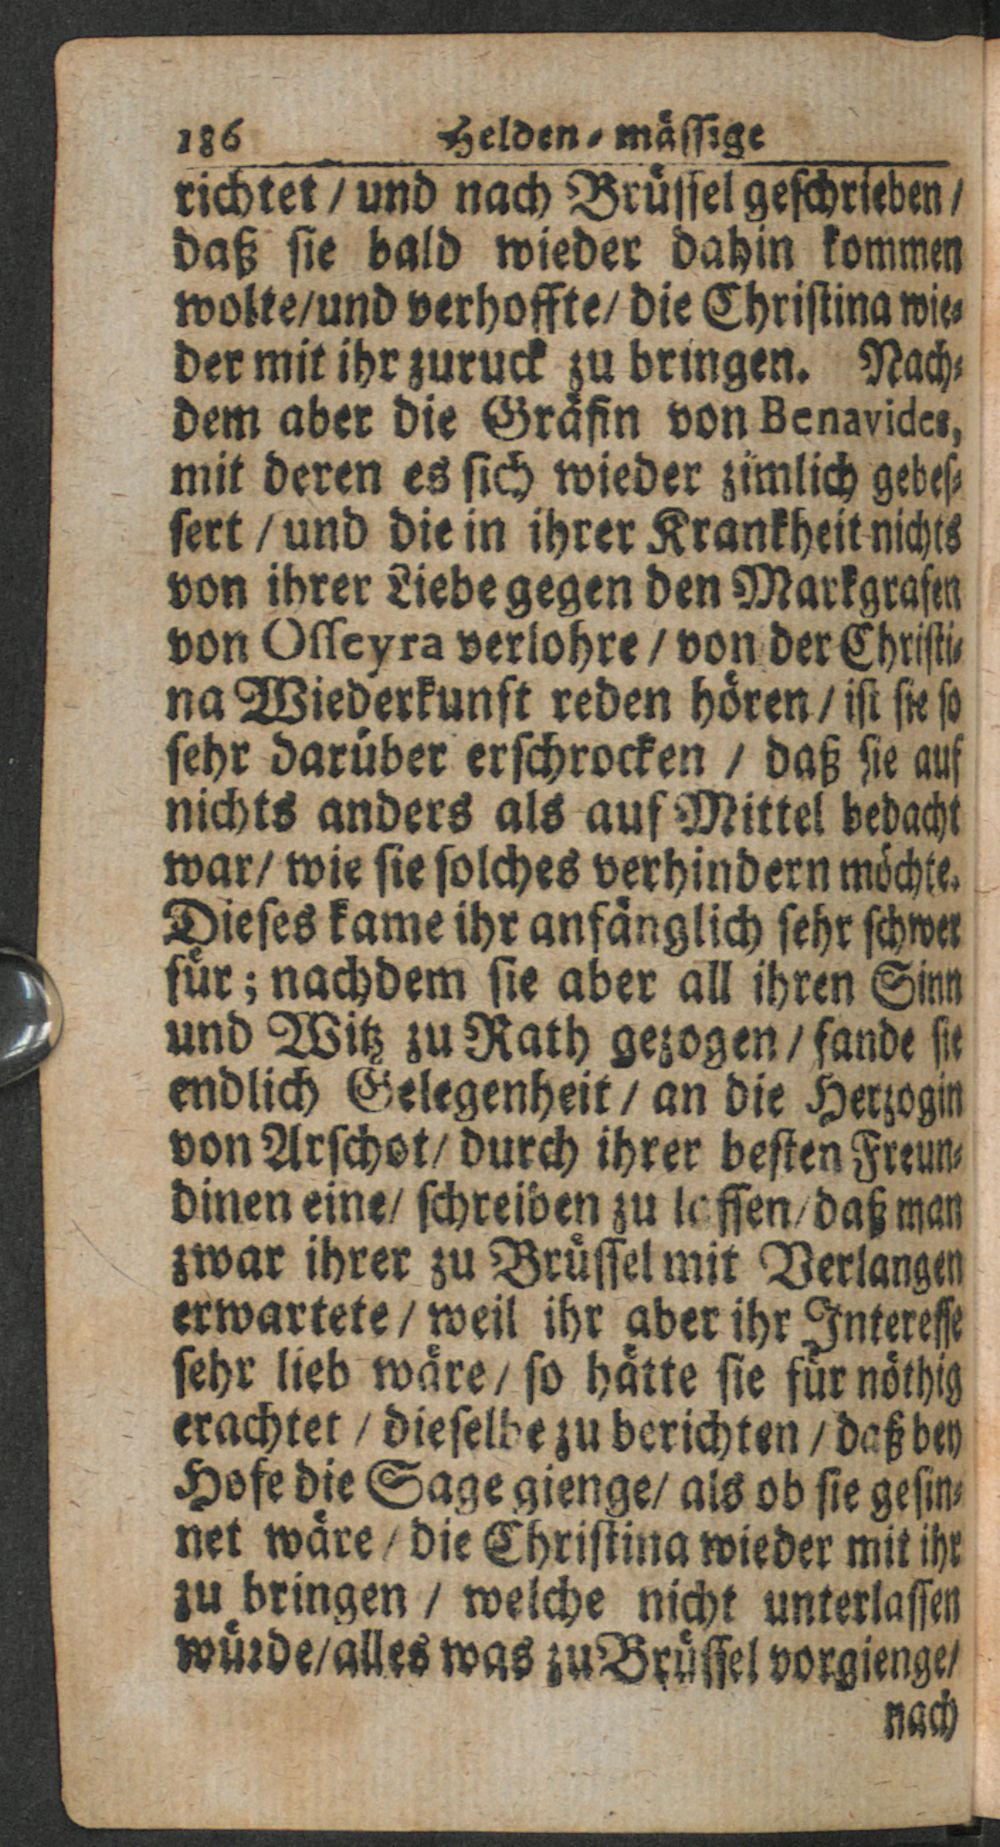 186 Helden-mässige
richtet / und nach Brüssel geschrieben /
daß sie bald wieder dahin kommen
wolte/und verhoffte/ die Christina wie-
der mit ihr zuruck zu bringen. Nach-
dem aber die Gräfin von Benavides,
mit deren es sich wieder zimlich gebes-
sert / und die in ihrer Krankheit nichts
von ihrer Liebe gegen den Markgrafen
von Osseyra verlohre / von der Christi-
na Wiederkunft reden hören / ist sie so
sehr darüber erschrocken / daß sie auf
nichts anders als auf Mittel bedacht
war/ wie sie solches verhindern möchte.
Dieses kame ihr anfänglich sehr schwer
für; nachdem sie aber all ihren Sinn
und Witz zu Rath gezogen / fande sie
endlich Gelegenheit / an die Herzogin
von Arschot/ durch ihrer besten Freun-
dinen eine/ schreiben zu lassen/ daß man
zwar ihrer zu Brüssel mit Verlangen
erwartete / weil ihr aber ihr Interesse
sehr lieb wäre / so hätte sie für nöthig
erachtet / dieselbe zu berichten / daß bey
Hofe die Sage gienge/ als ob sie gesin-
net wäre / die Christina wieder mit ihr
zu bringen / welche nicht unterlassen
würde/alles was zu Brüssel vorgienge/
nach